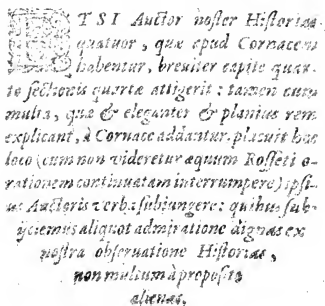 ETSI Auctor noster Historias
quatuor, quæ apud Cornacem
habentur, breviter capite quar-
to sectionis quartæ attigerit: tamen cum
multa, quæ & eleganter & planius rem
explicant, à Cornace addantur. placuit hoc
loco (cum non videretur æquum Rosseti o-
rationem continuatam interrumpere) ipsi-
us Auctoris verba subjungere: quibus sub-
yciemus aliquot admiratione dignas ex
nostra observatione Historias,
non multum à proposito
alienas.